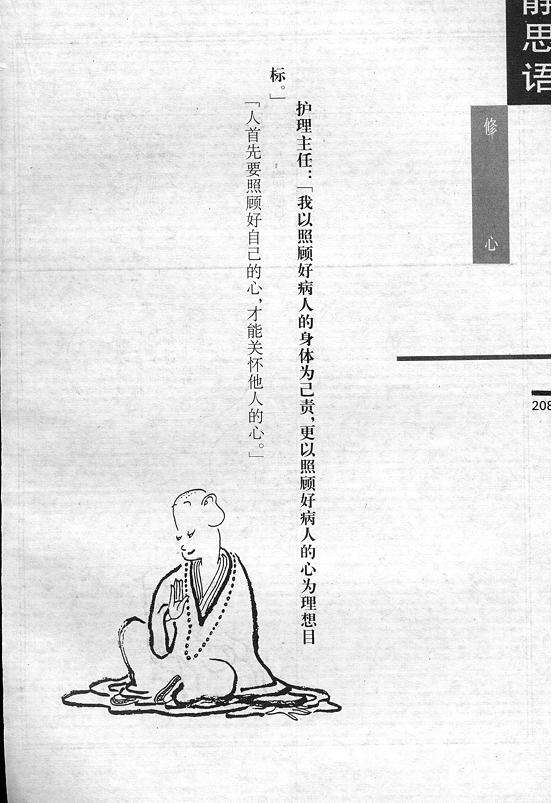 静思语
修心
208
护理主任：「我以照顾好病人的身体为己责，更以照顾好病人的心为理想目
标。」
「人首先要照顾好自己的心，才能关怀他人的心。」